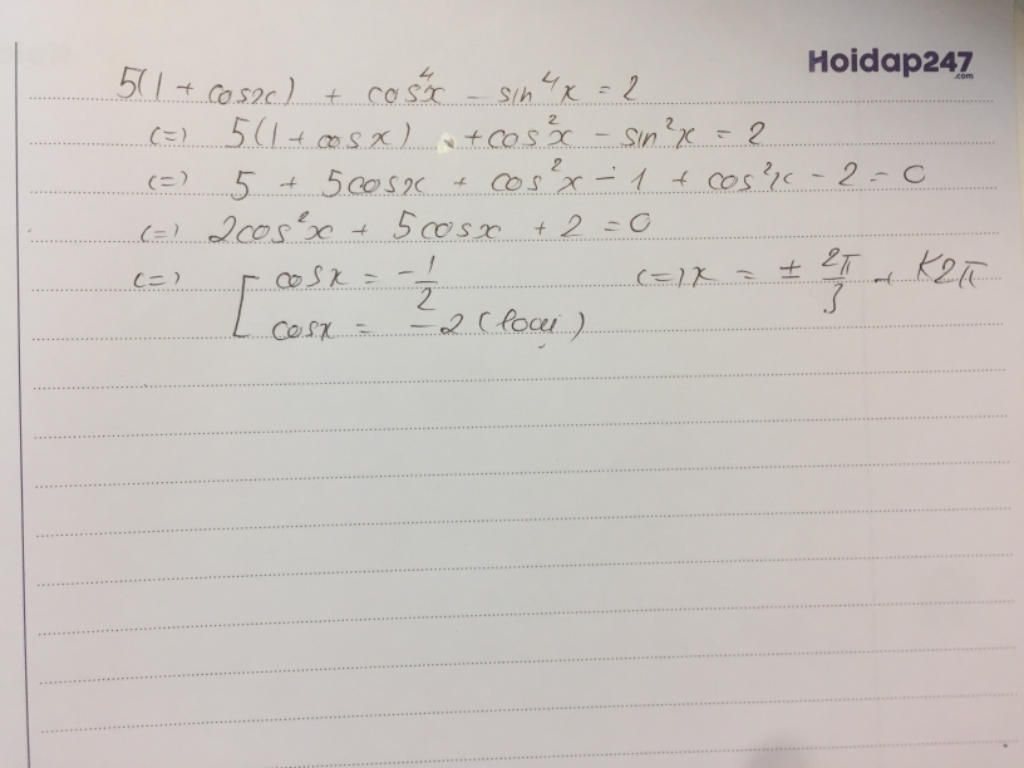 Hoidap247
.com
5(1 + cosx) + cos⁴x - sin⁴x = 2
(=) 5(1 + cosx) + cos²x - sin²x = 2
(=) 5 + 5cosx + cos²x - 1 + cos²x - 2 = 0
(=) 2cos²x + 5cosx + 2 = 0
(=) [ cosx = -1/2 (=) x = ± 2π/3 + K2π
cosx = -2 (loại)